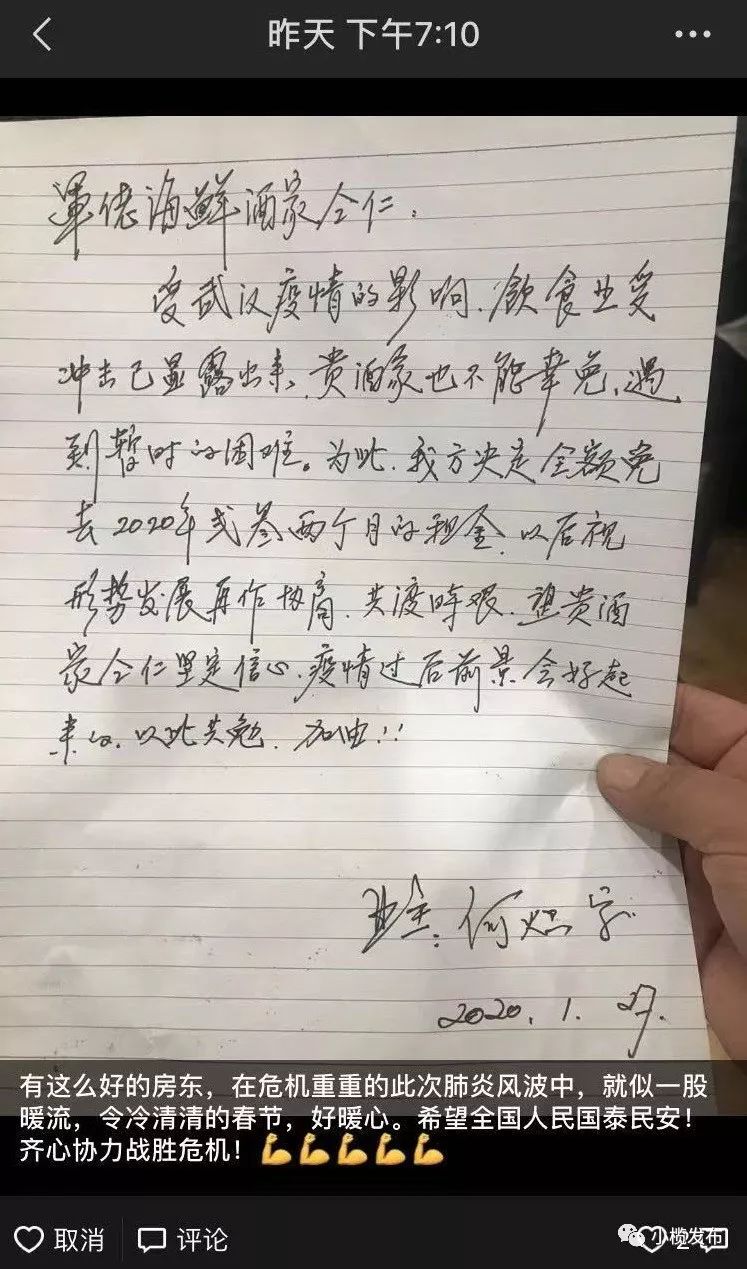 昨天 下午7:10
军佬海鲜酒家仝仁：
受武汉疫情的影响、饮食业受
冲击已显露出来、贵酒家也不能幸免、遇
到暂时的困难。为此、我方决定全额免
去2020年弍叁两个月的租金、以后视
形势发展再作协商、共渡时艰、望贵酒
家仝仁坚定信心、疫情过后前景会好起
来的、以此共勉、加油!!
业主：何
2020.1.27.
有这么好的房东，在危机重重的此次肺炎风波中，就似一股
暖流，令冷清清的春节，好暖心。希望全国人民国泰民安！
齐心协力战胜危机！💪💪💪💪💪
取消 评论 2
小榄发布